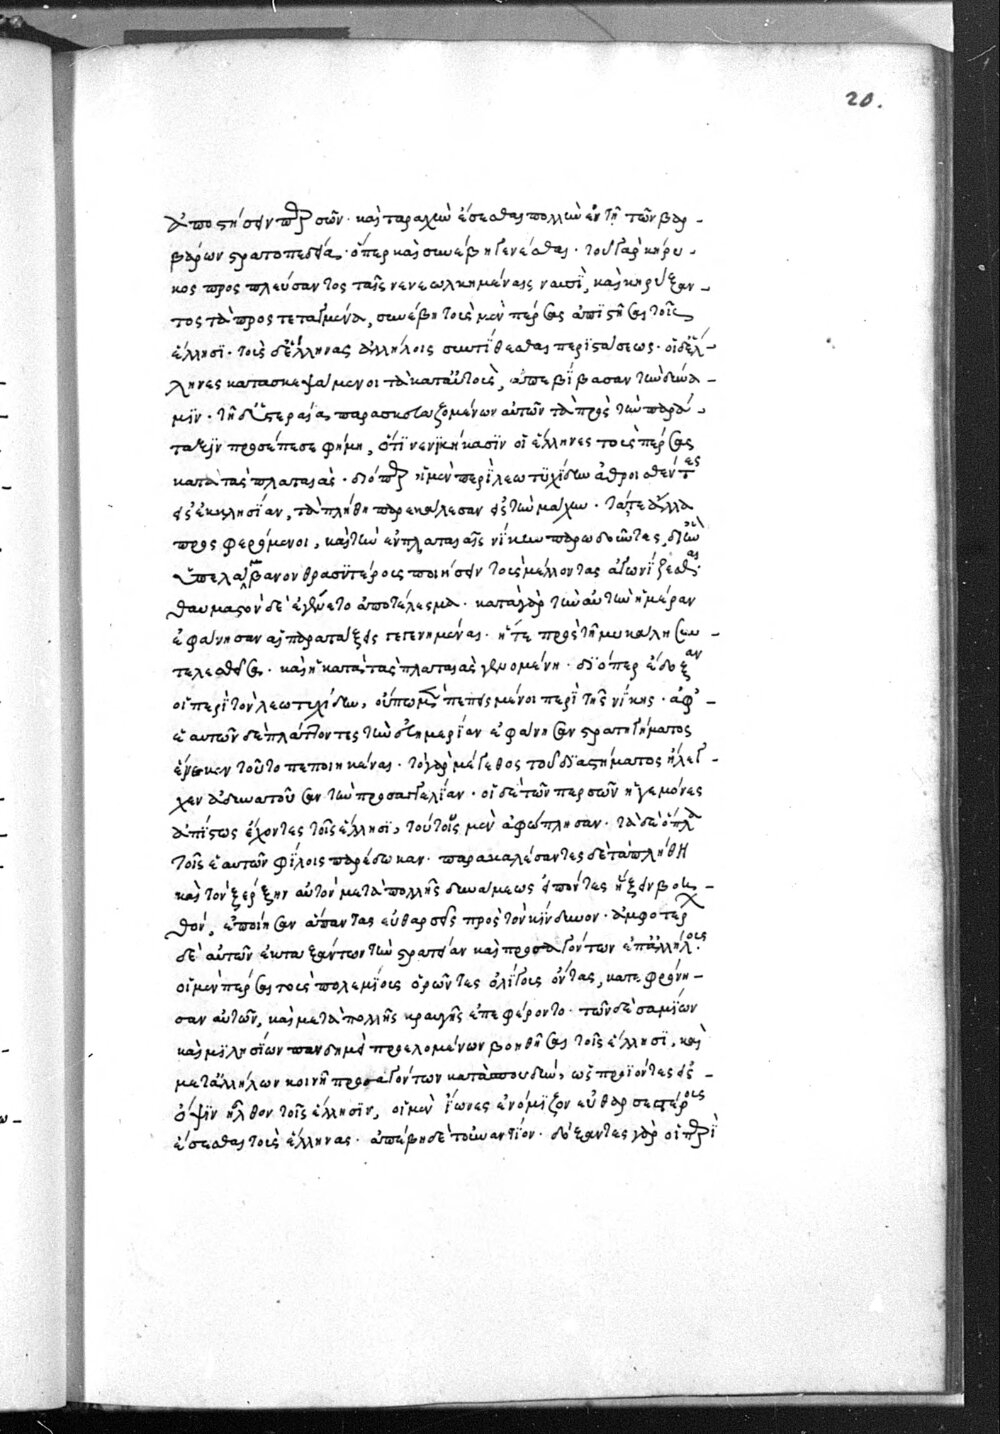 20.
ἀποστήσειν περσῶν. καὶ ταραχὴν ἔσεσθαι πολλὴν ἐν τῆ τῶν βαρ-
βάρων στρατοπεδεία. ὅπερ καὶ συνέβη γενέσθαι. τοῦ γὰρ κήρυ-
κος προσπλεύσαντος ταῖς νενεωλκημέναις ναυσὶ, καὶ κηρύξαν-
τος τὰ προστεταγμένα, συνέβη τοὺς μὲν πέρσας ἀπιστῆσαι τοῖς
ἕλλησι. τοὺς δὲ ἕλληνας ἀλλήλοις συντίθεσθαι περὶ στάσεως. οἱ δὲ ἕλ-
ληνες κατασκεψάμενοι τὰ κατ' αὐτοὺς, ἀπεβίβασαν τὴν δύνα-
μιν. τῆ δ' ὑστεραία παρασκευαζομένων αὐτῶν τὰ πρὸς τὴν παρά-
ταξιν προσέπεσε φήμη, ὅτι νενικήκασιν οἱ ἕλληνες τοὺς πέρσας
κατὰ τὰς πλαταιάς. διόπερ οἱ μὲν περὶ λεωτυχίδην ἀθροισθέντες
εἰς ἐκκλησίαν, τὰ πλήθη παρεκάλεσαν εἰς τὴν μάχην. τά τε ἄλλα
προσφερόμενοι, καὶ τὴν ἐν πλαταιαῖς νίκην παρωδοῦντες, δι' ὧν
ὑπελάμβανον θρασυτέρους ποιήσειν τοὺς μέλλοντας ἀγωνίζεσθαι.
θαυμαστὸν δὲ ἐγένετο ἀποτέλεσμα. κατὰ γὰρ τὴν αὐτὴν ἡμέραν
ἐφάνησαν αἱ παρατάξεις γεγενημέναι. ἥ τε πρὸς τῆ μυκάλη συν-
τελεσθεῖσα. καὶ ἡ κατὰ τὰς πλαταιὰς γενομένη. διόπερ ἔδοξαν
οἱ περὶ τὸν λεωτυχίδην, οὔπω μὲν πεπυσμένοι περὶ τῆς νίκης. ἀφ'
ἑαυτῶν δὲ πλάττοντες τὴν εὐημερίαν ἐφάνησαν στρατηγήματος
ἕνεκεν τοῦτο πεποιηκέναι. τὸ γὰρ μέγεθος τοῦ διαστήματος ἤλεγ-
χεν ἀδύνατον οὖσαν τὴν προσαγγελίαν. οἱ δὲ τῶν περσῶν ἡγεμόνες
ἀπίστως ἔχοντες τοῖς ἕλλησι, τούτους μὲν ἀφώπλησαν. τὰ δὲ ὅπλα
τοῖς ἑαυτῶν φίλοις παρέδωκαν. παρακαλέσαντες δὲ τὰ πλήθη
καὶ τὸν ξέρξην αὐτὸν μετὰ πολλῆς δυνάμεως εἰπόντες ἥξειν βοη-
θόν, ἐποίησαν ἅπαντας εὐθαρσεῖς πρὸς τὸν κίνδυνον. ἀμφοτέρων
δὲ αὐτῶν ἐκταξάντων τὴν στρατείαν καὶ προσαγόντων ἐπ' ἀλλήλους.
οἱ μὲν πέρσαι τοὺς πολεμίους ὁρῶντες ὀλίγους ὄντας, κατεφρόνη-
σαν αὐτῶν, καὶ μετὰ πολλῆς κραυγῆς ἐπεφέροντο. τῶν δὲ σαμίων
καὶ μιλησίων πανδημεὶ προελομένων βοηθῆσαι τοῖς ἕλλησι, καὶ
μετ' ἀλλήλων κοινῆ προαγόντων κατὰ σπουδὴν, ὡς προϊόντες εἰς
ὄψιν ἦλθον τοῖς ἕλλησιν, οἱ μὲν ἴωνες ἐνόμιζον εὐθαρσεστέρους
ἔσεσθαι τοὺς ἕλληνας. ἀπέβη δὲ τοὐναντίον. δόξαντες γὰρ οἱ περὶ